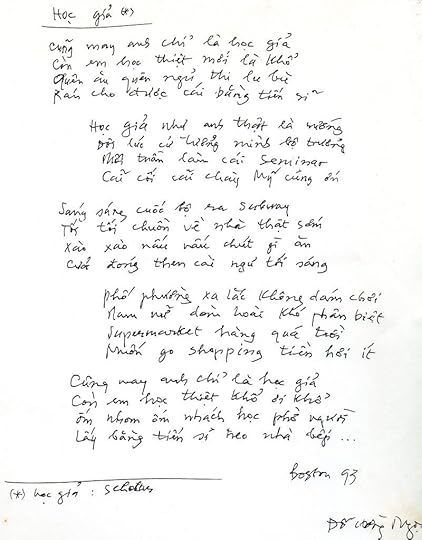 Học giả (*)
Cũng may anh chỉ là học giả
Còn em học thiệt mới là khổ
Quên ăn quên ngủ thi lu bù
Ráng cho được cái bằng tiến sĩ
Học giả như anh thật là sướng
Đôi lúc cứ tưởng mình bộ trưởng
Mỗi tuần làm cái Seminar
Cãi cối cãi chày Mỹ cũng ớn
Sáng sáng cuốc bộ ra Subway
Tối tối chuồn về nhà thật sớm
Xào xào nấu nấu chút gì ăn
Cửa đóng then cài ngủ tới sáng
Phố phường xa lắc không dám chơi
Nam nữ dòm hoài khó phân biệt
Supermarket hàng quá trời
Muốn go shopping tiền hơi ít
Cũng may anh chỉ là học giả
Còn em học thiệt khổ ơi khổ
Ốm nhom ốm nhách học phờ người
Lấy bằng tiến sĩ treo nhà bếp ...
Boston 93
(*) học giả : Scholars
Đỗ